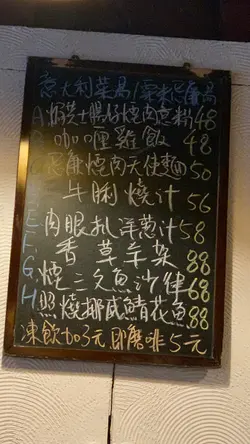 意大利菜湯/粟米忌廉湯
A 焗芝士腸仔燒肉意粉 48
咖喱雞飯 48
燒肉天使麵 50
牛脷燒汁 56
E. 肉眼扒洋葱汁 58
F. 香草羊架 88
G. 煙三文魚沙律 68
H 照燒挪威鯖花魚 88
凍飲加3元 即磨啡5元